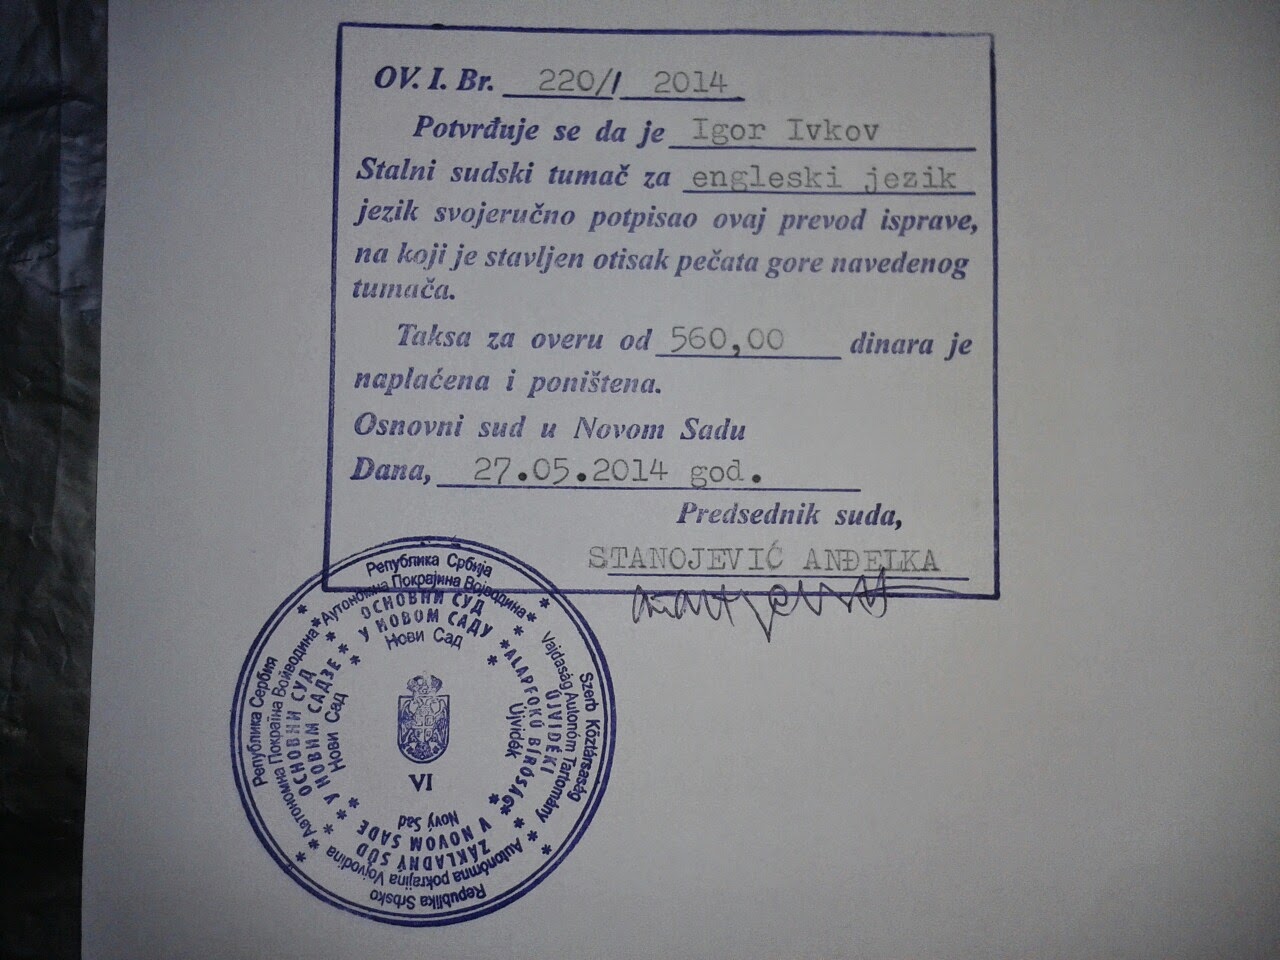 OV. I. Br. 220/1 2014
Potvrđuje se da je Igor Ivkov
Stalni sudski tumač za engleski jezik
jezik svojeručno potpisao ovaj prevod isprave,
na koji je stavljen otisak pečata gore navedenog
tumača.
Taksa za overu od 560,00 dinara je
naplaćena i poništena.
Osnovni sud u Novom Sadu
Dana, 27.05.2014 god.
Predsednik suda,
STANOJEVIĆ ANĐELKA
Република Србија
Аутономна Покрајина Војводина
ОСНОВНИ СУД
У НОВОМ САДУ
Нови Сад
Szerb Köztársaság
Vajdaság Autonóm Tartomány
ÚJVIDÉKI
ALAPFOKÚ BÍRÓSÁG
Újvidék
Republika Srbsko
Autonómna pokrajina Vojvodina
ZÁKLADNÝ SÚD
V NOVOM SADE
Nový Sad
Република Сербия
Автономна Покраїна Войводина
ОСНОВНИ СУД
У НОВИМ САДЗЕ
Нови Сад
VI